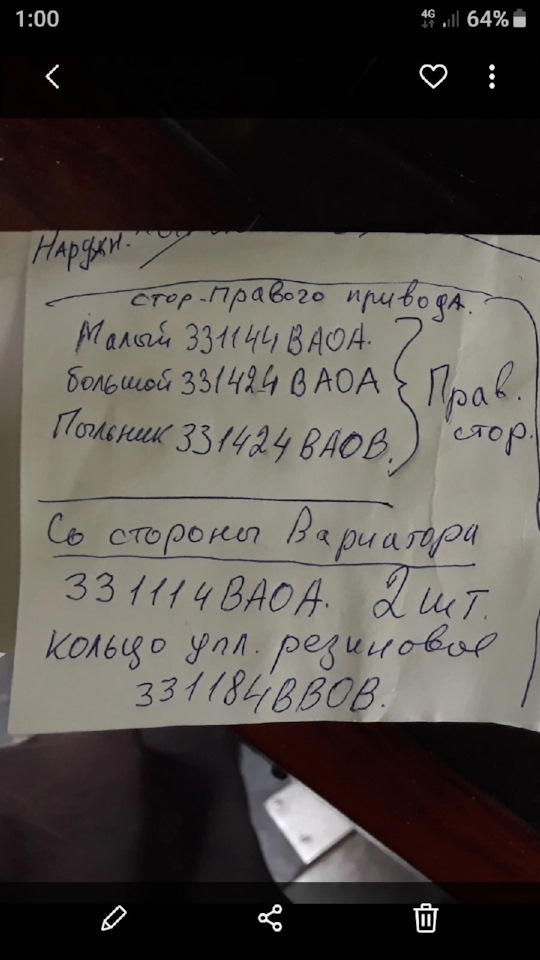 1:00
4G
64%
Наружн.
стор. Правого привода.
Малый 331144ВА0А.
большой 331424ВА0А
Пыльник 331424ВА0В.
Прав.
стор.
Со стороны Вариатора
331114ВА0А. 2 шт.
кольцо упл. резиновое
331184ВВ0В.